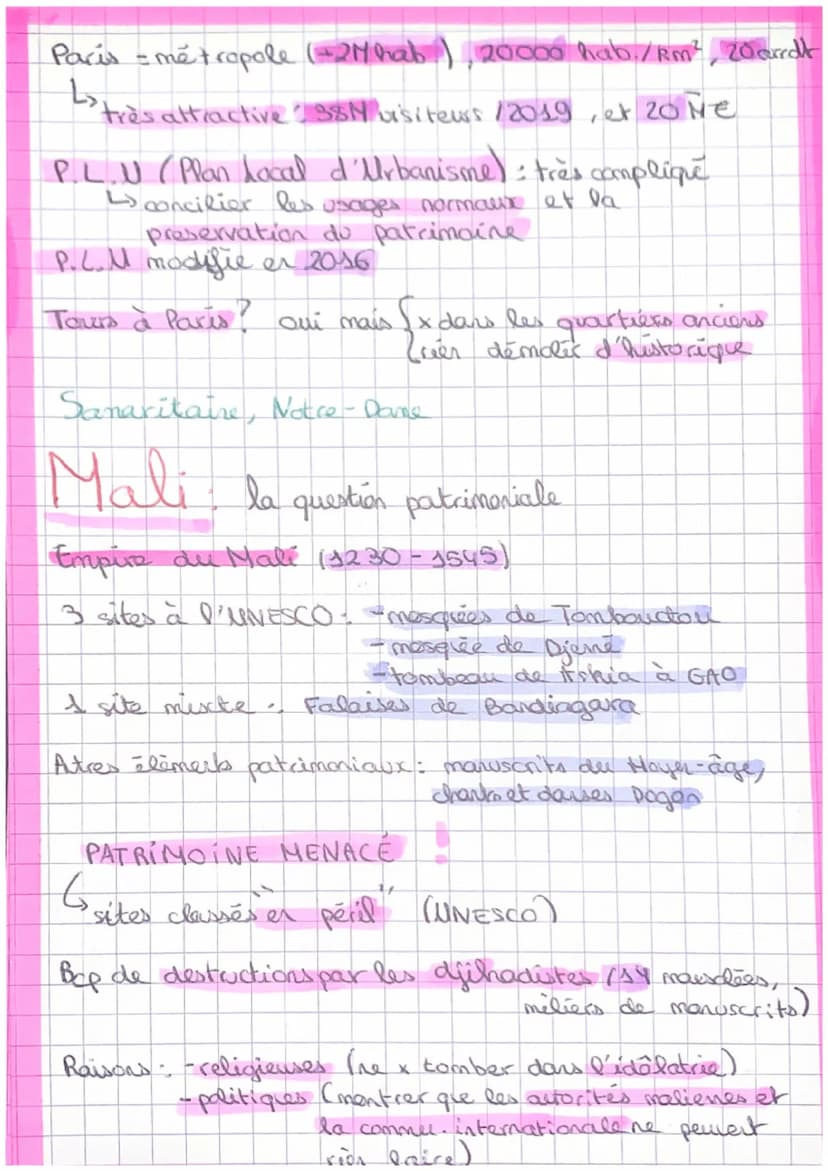 Paris = métropole (+2M hab.), 20000 hab./km², 20 arrdt
↳ très attractive : 38M visiteurs /2019, et 20 M €
P.L.U (Plan Local d'Urbanisme) : très compliqué
↳ concilier les usages normaux et la
preservation du patrimoine
P.L.U modifié en 2016
Tours à Paris? oui mais { x dans les quartiers anciens
rien démolir d'historique
Samaritaine, Notre-Dame
Mali : la question patrimoniale
Empire du Mali (1230-1545)
3 sites à l'UNESCO : -mosquées de Tombouctou
-mosquée de Djenné
-tombeau de Askia à GAO
1 site mixte : Falaises de Bandiagara
Atres éléments patrimoniaux : manuscrits du Moyen-âge,
chants et danses Dogon
PATRIMOINE MENACÉ !
↳ sites classés "en péril" (UNESCO)
Bcp de destuctions par les djihadistes (14 mausolées,
miliers de manuscrits)
Raisons : -religieuses (ne x tomber dans l'idôlatrie)
-politiques (montrer que les autorités maliennes et
la commu. internationale ne peuvent
rien faire)